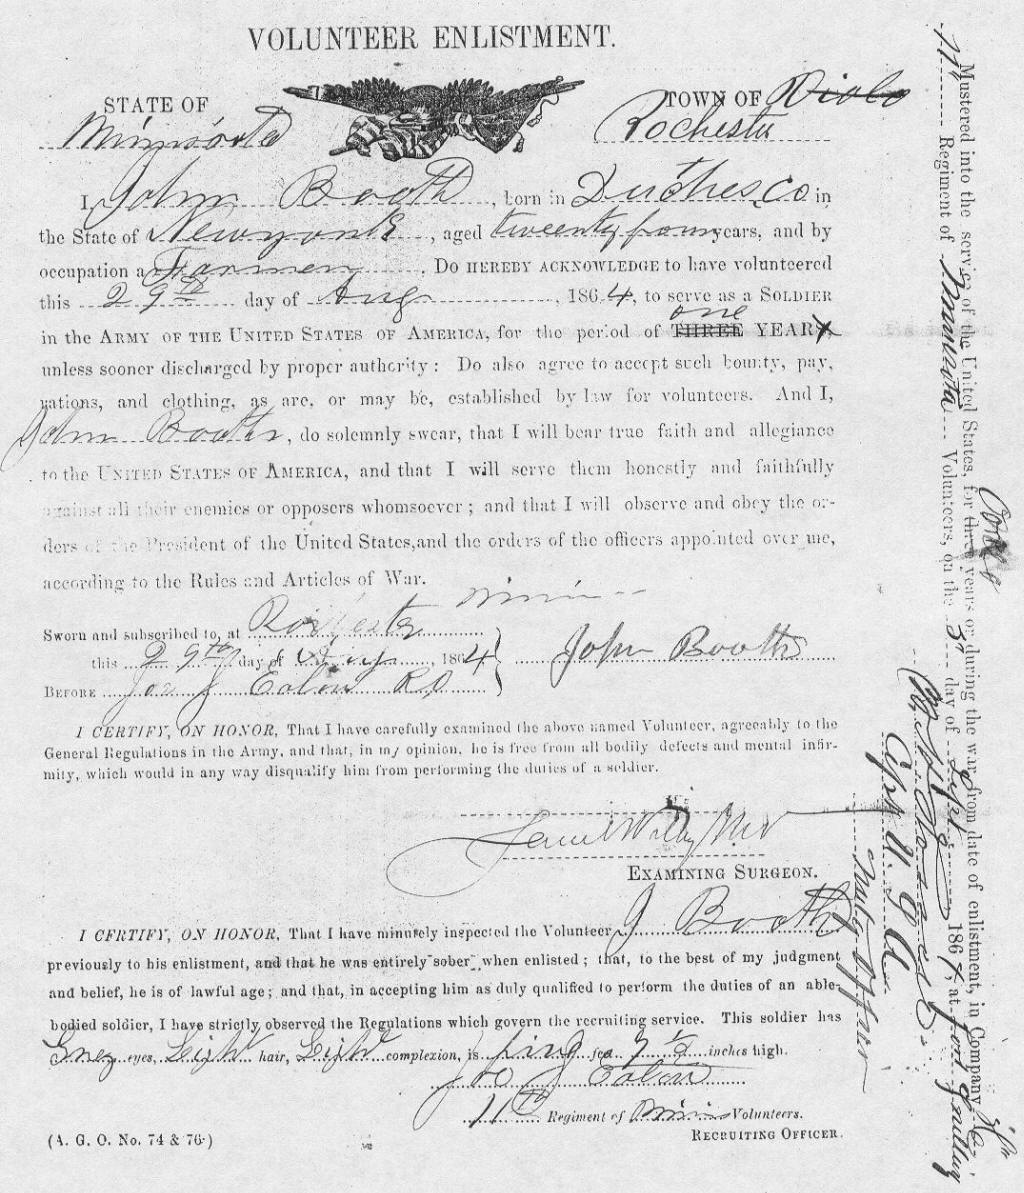 VOLUNTEER ENLISTMENT.
STATE OF
Minnesota
TOWN OF Viola
Rochester
I, John Booth, born in Duthes Co in
the State of Newyork, aged twenty four years, and by
occupation a Farmer. DO HEREBY ACKNOWLEDGE to have volunteered
this 29th day of Aug, 1864, to serve as a SOLDIER
one
in the ARMY OF THE UNITED STATES OF AMERICA, for the period of THREE YEARS,
unless sooner discharged by proper authority: Do also agree to accept such bounty, pay,
rations, and clothing, as are, or may be, established by law for volunteers. And I,
John Booth, do solemnly swear, that I will bear true faith and allegiance
to the UNITED STATES OF AMERICA, and that I will serve them honestly and faithfully
against all their enemies or opposers whomsoever; and that I will observe and obey the or-
ders of the President of the United States, and the orders of the officers appointed over me,
according to the Rules and Articles of War.
Sworn and subscribed to, at Rochester Minn
this 29th day of Aug, 1864
BEFORE
John Booth
I CERTIFY, ON HONOR, That I have carefully examined the above named Volunteer, agreeably to the
General Regulations in the Army, and that, in my opinion, he is free from all bodily defects and mental infir-
mity, which would in any way disqualify him from performing the duties of a soldier.
EXAMINING SURGEON.
I CERTIFY, ON HONOR, That I have minutely inspected the Volunteer J Booth
previously to his enlistment, and that he was entirely sober when enlisted; that, to the best of my judgment
and belief, he is of lawful age; and that, in accepting him as duly qualified to perform the duties of an able-
bodied soldier, I have strictly observed the Regulations which govern the recruiting service. This soldier has
Grey eyes, Light hair, Light complexion, is five feet 7 inches high.
11th Regiment of Minn Volunteers.
RECRUITING OFFICER.
(A. G. O. No. 74 & 76.)
Mustered into the service of the United States, for three years or during the war, from date of enlistment, in Company
11" Regiment of Minnesota Volunteers, on the 3" day of Sept 1864, at Fort Snelling
Capt U S A
Mustg Officer